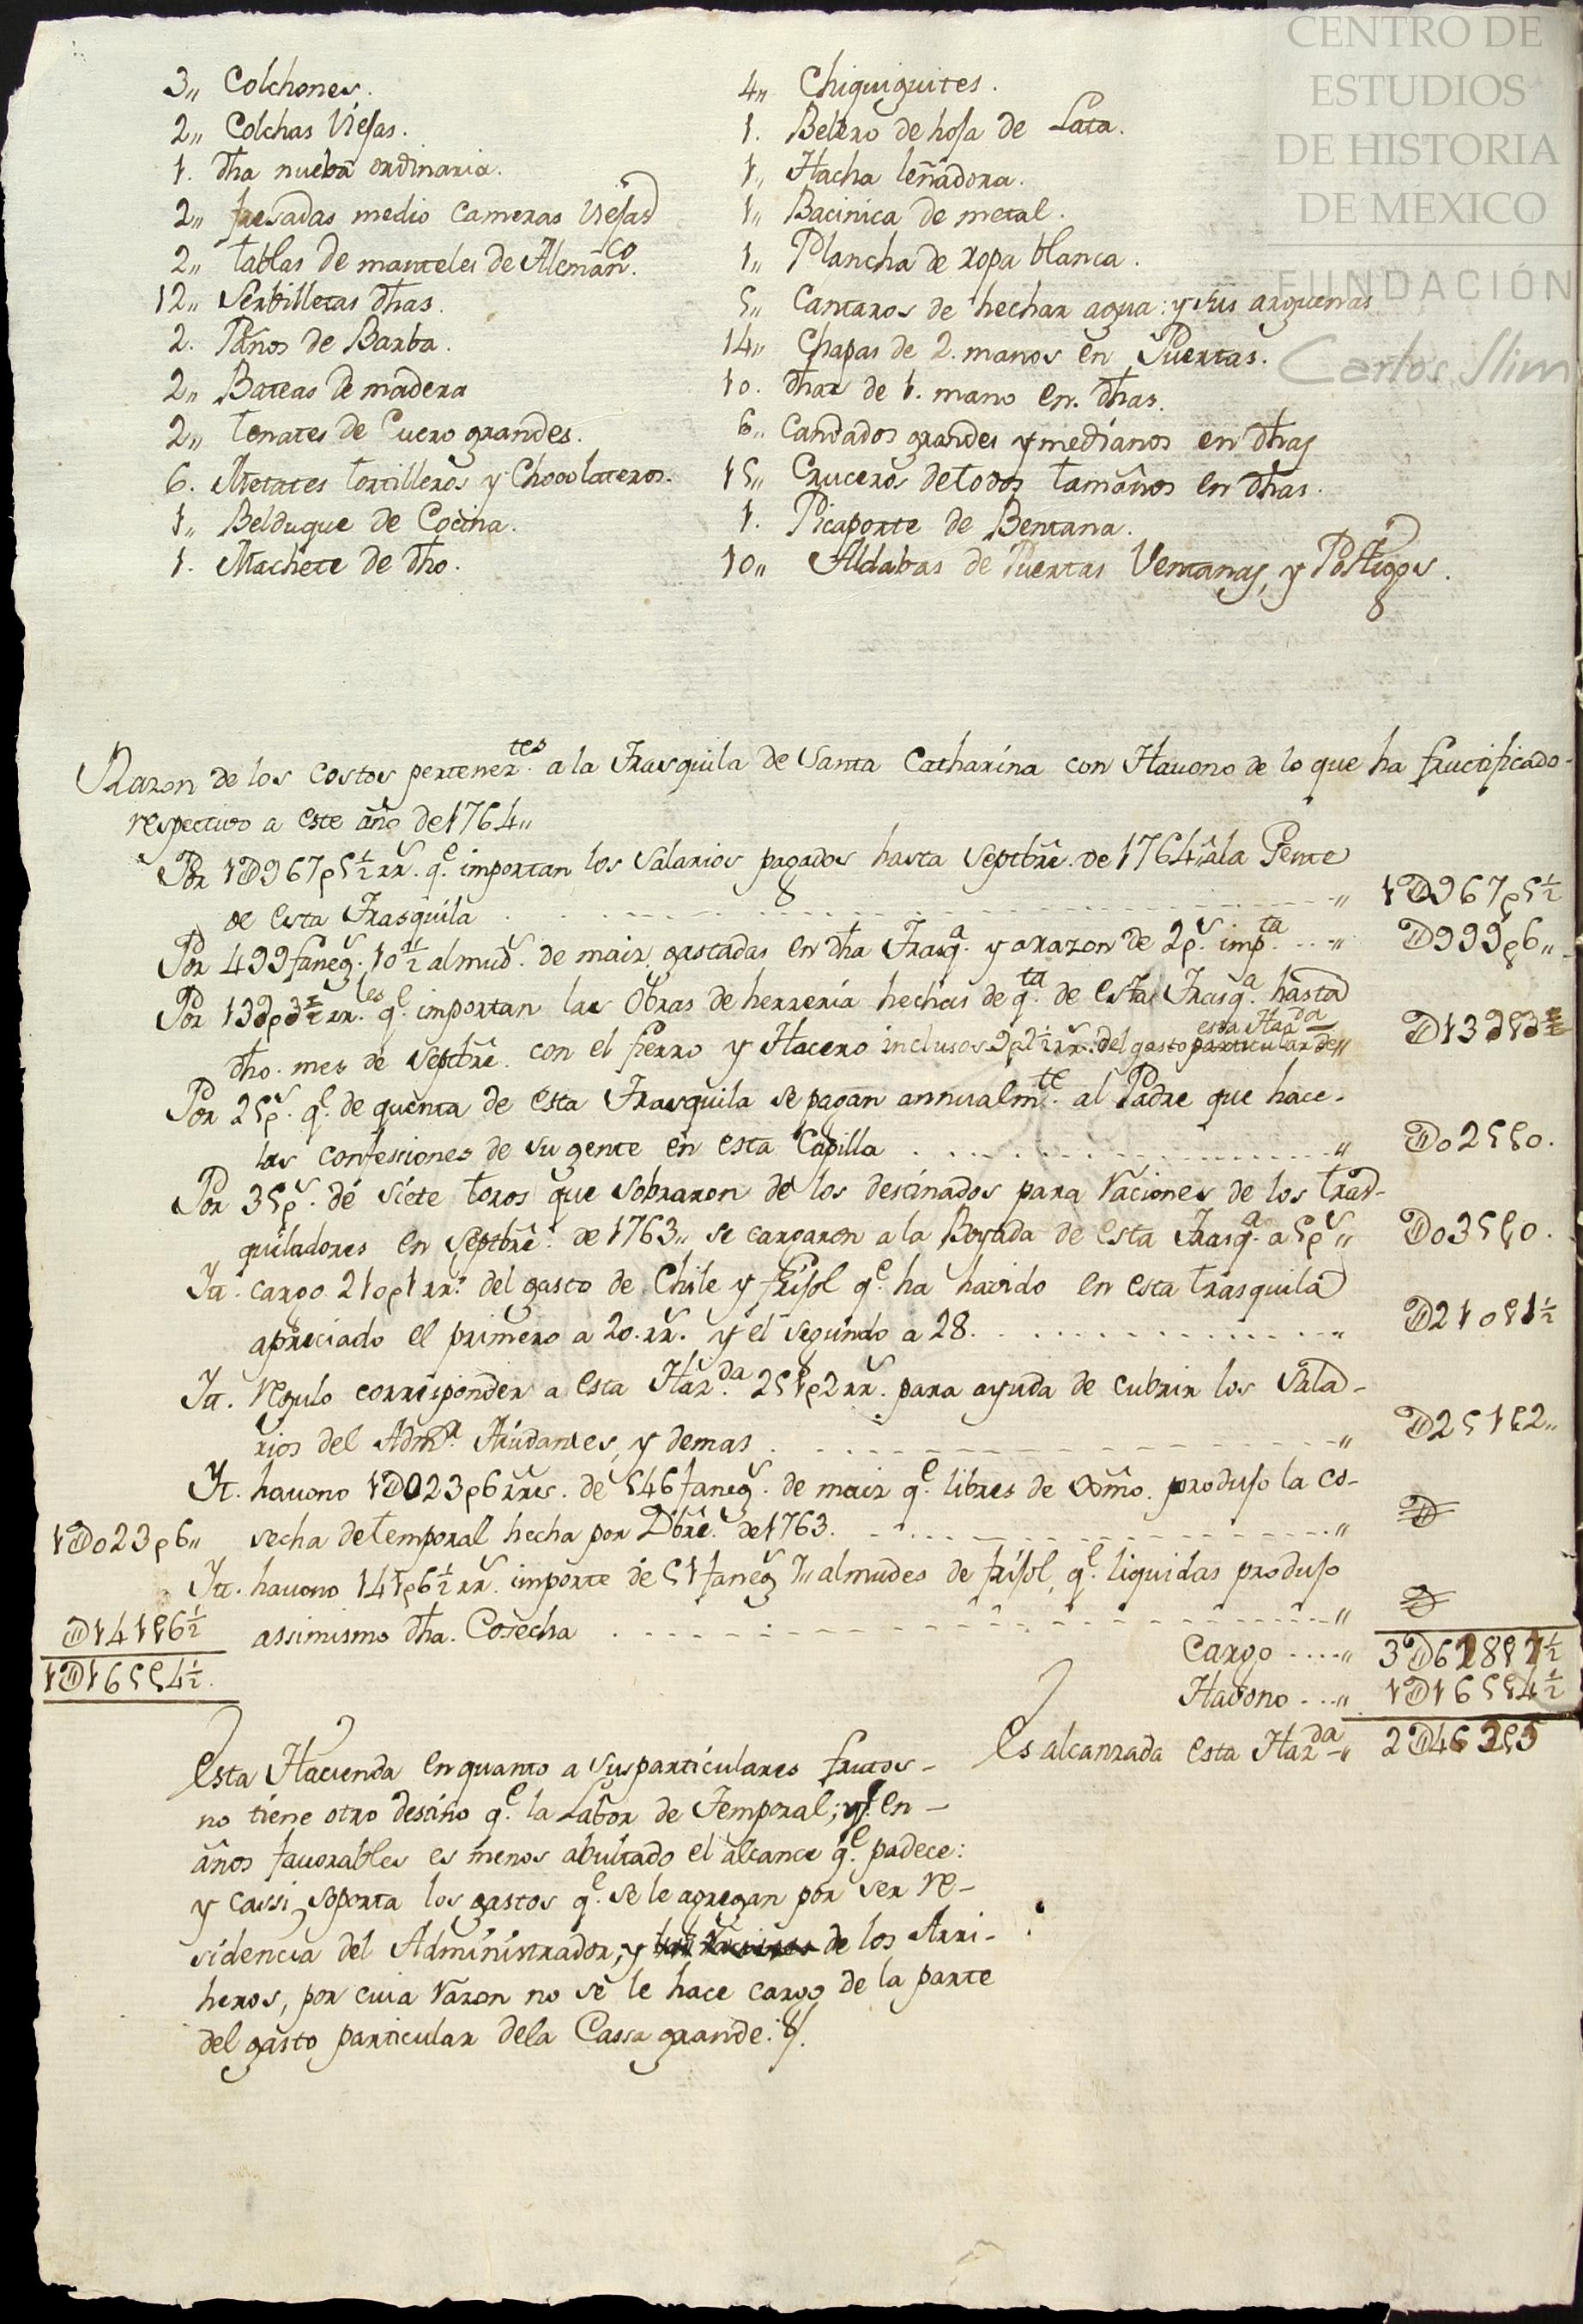 CENTRO DE
ESTUDIOS
DE HISTORIA
DE MEXICO
FUNDACIÓN
Carlos Slim
3,, Colchones.
2,, Colchas Viejas.
1. dha nueba ordinaria.
2,, fresadas medio Cameras Viejas
2,, tablas de manteles de Alemanco.
12,, Serbilletas dhas.
2. Paños de Barba.
2,, Bateas de madera
2,, tenates de Cuero grandes.
6. Metates tortilleros y Chocolateros.
1,, Belduque de Cocina.
1. Machete de dho.
4,, Chiquiguites.
1. Belero de hoja de Lata.
1,, Hacha leñadora.
1,, Bacinica de metal.
1,, Plancha de ropa blanca.
5,, Cantaros de hechar agua: y sus arguenas
14,, Chapas de 2. manos en Puertas.
10. dhas de 1. mano en. dhas.
6,, Candados grandes y medianos en dhas
15,, Cruceros de todos tamaños en dhas.
1. Picaporte de Bentana.
10,, Aldabas de Puertas Ventanas, y Postigos.
Razon de los costos pertenertes a la Trasquila de Santa Catharina con Havono de lo que ha fructificado
respectivo a este año de 1764,,
Por 1D967p5½ rrs. qe. importan los Salarios pagados hasta Septbre. de 1764,, a la Gente
de esta Trasquila ,, 1D967p5½
Por 499 faneg. 10½ almuds. de maiz gastadas en dha Trasqa. y a razon de 2ps. impta. ,, D999p6,,
Por 139p3½ rrles. qe. importan las Obras de herreria hechas de qta. de esta Trasqa. hasta
dho. mes de Septbre. con el fierro y Hacero inclusos 9p2½ rrs. del gasto particular de esta Hazda ,, D139p3½
Por 25ps. qe. de quenta de esta Trasquila se pagan annualmte. al Padre que hace
las confesciones de su gente en esta Capilla ,, D025p0.
Por 35ps. de siete toros que sobraron de los destinados para raciones de los tras-
quiladores en Septbre. de 1763,, se cargaron a la Boyada de esta Trasqa. a 5ps ,, D035p0.
It. cargo 210p1 rrs. del gasto de Chile y frisol qe. ha havido en esta trasquila
apreciado el primero a 20. rrs. y el segundo a 28. ,, D210p1½
It. regulo corresponder a esta Hazda. 251p2 rrs. para ayuda de cubrir los Sala-
rios del Admor. Aiudantes, y demas ,, D251p2,,
It. havono 1D023p6 rres. de 546 fanegs. de maiz qe. libres de Dmo. produjo la co-
1D023p6,, secha de temporal hecha por Dbre. de 1763. ,, D
It. havono 141p6½ rrs. importe de 51 fanegs 7,, almudes de frisol, qe. liquidas produjo
D141p6½ assimismo dha. Cosecha ,, D
1D165p4½.
Cargo ,, 3D628p1½
Havono ,, 1D165p4½
Es alcanzada esta Hazda ,, 2D462p5
Esta Hacienda en quanto a sus particulares frutos
no tiene otro destino qe. la Labor de Temporal; y en
años favorables es menos abultado el alcance qe. padece:
y cassi soporta los gastos qe. se le agregan por ser re-
sidencia del Administrador, y de los Arri-
heros, por cuia razon no se le hace cargo de la parte
del gasto particular de la Cassa grande.